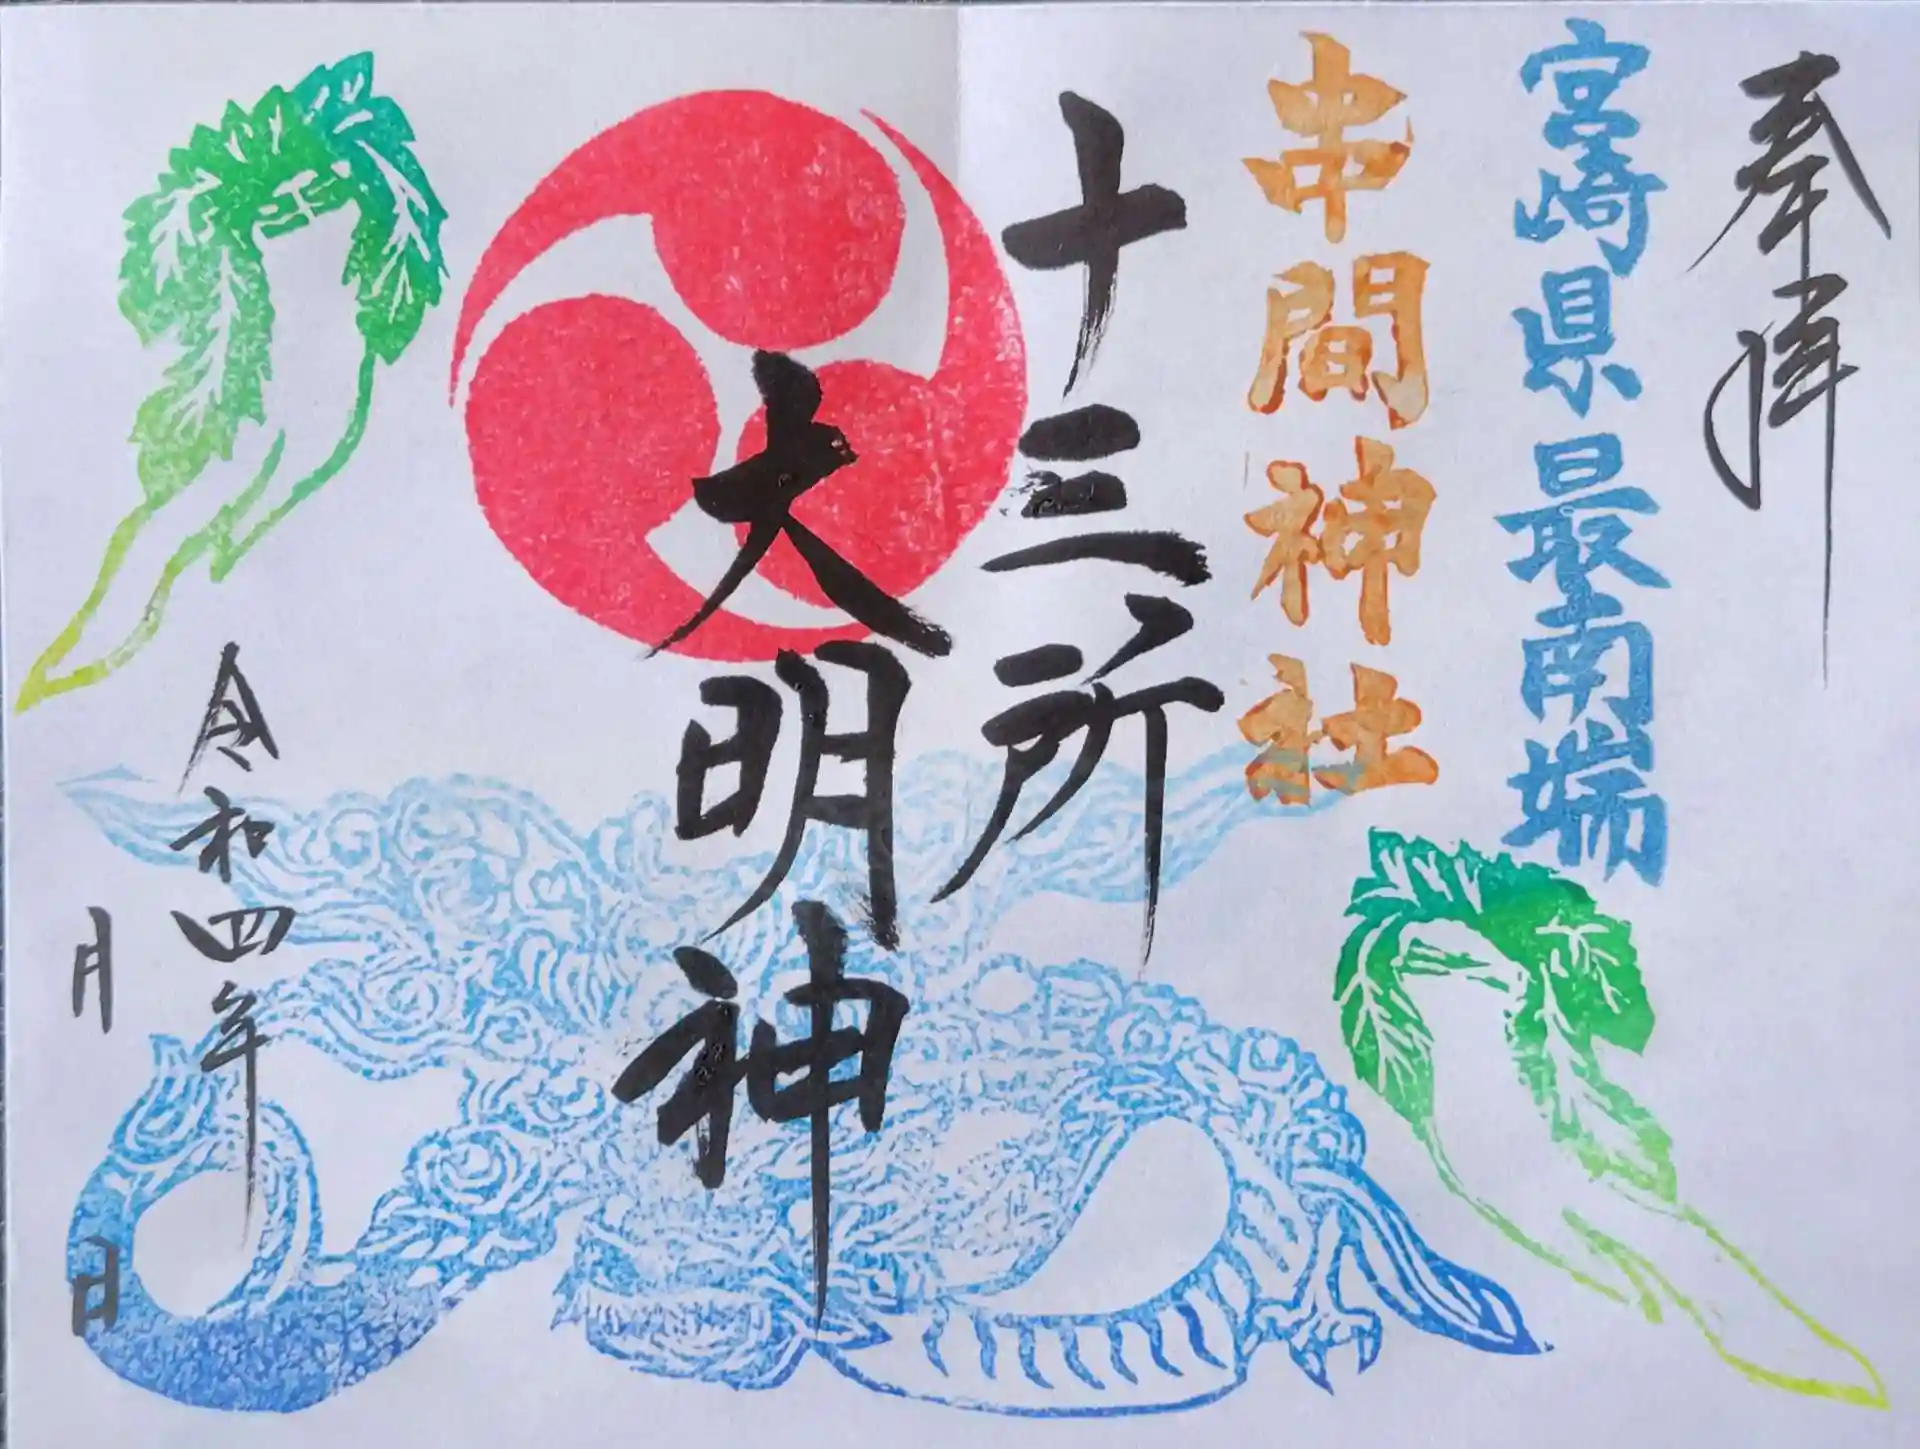 奉拝
宮崎県最南端
串間神社
十三所
大明神
令和四年
月
日